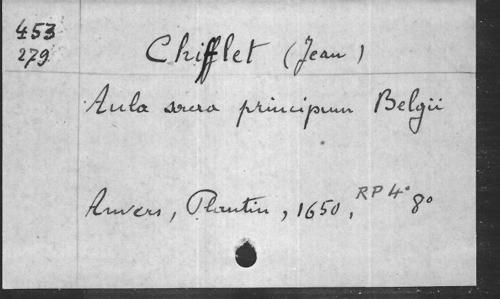 453
279
Chifflet (Jean)
Aula sacra principum Belgii
Anvers, Plantin, 1650, RP 4° 8°